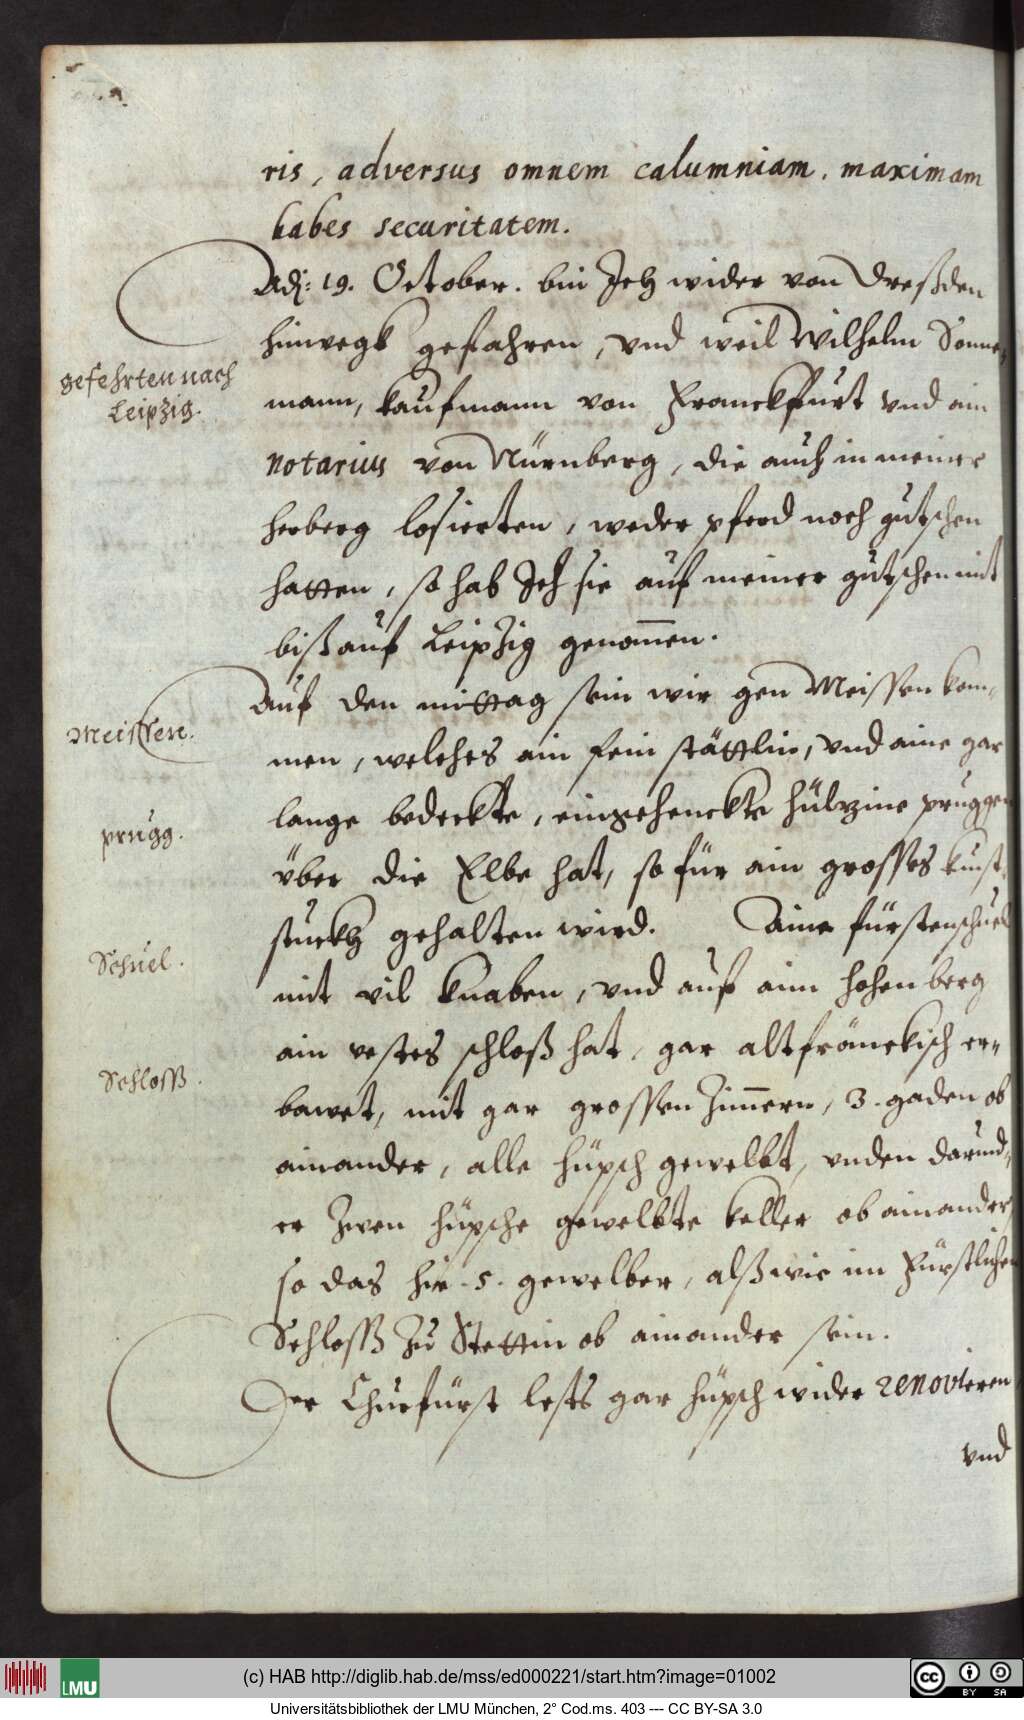 ris, adversus omnem calumniam, maximam
habes securitatem.
Adj: 19. October. bin Ich wider von Dreßden
hinwegk gefahren, vnd weil Wilhelm Sonne-
gefehrten nach
Leipzig.
mann, kaufmann von Franckfurt vnd ain
notarius von Nürnberg, die auch in meiner
herberg losierten, weder pferd noch gutschen
hatten, so hab Ich sie auf meiner gutschen mit
biß auf Leipzig genom̄en.
Auf den mittag sein wir gen Meissen kom-
Meissen.
men, welches ain fein stättlin, vnd aine gar
lange bedeckte, eingehenckte hültzine pruggen
prugg.
über die Elbe hat, so für ain grosses kunst-
stuckh gehalten wird. Aine fürstenschuel
Schuel.
mit vil knaben, vnd auf aim hohen berg
ain vestes schloß hat, gar altfränckisch er-
Schloss.
bawet, mit gar grossen Zim̄ern, 3. gaden ob
ainander, alle hüpsch gewelbt, vnden darund-
er Zwen hüpsche gewelbte keller ob ainander,
so das hie .5. gewelber, alß wie im Fürstlichen
Schloss Zu Stettin ob ainander sein.
Der Churfürst lests gar hüpsch wider renovieren
vnd
(c) HAB http://diglib.hab.de/mss/ed000221/start.htm?image=01002
LMU
cc BY SA
Universitätsbibliothek der LMU München, 2° Cod.ms. 403 --- CC BY-SA 3.0